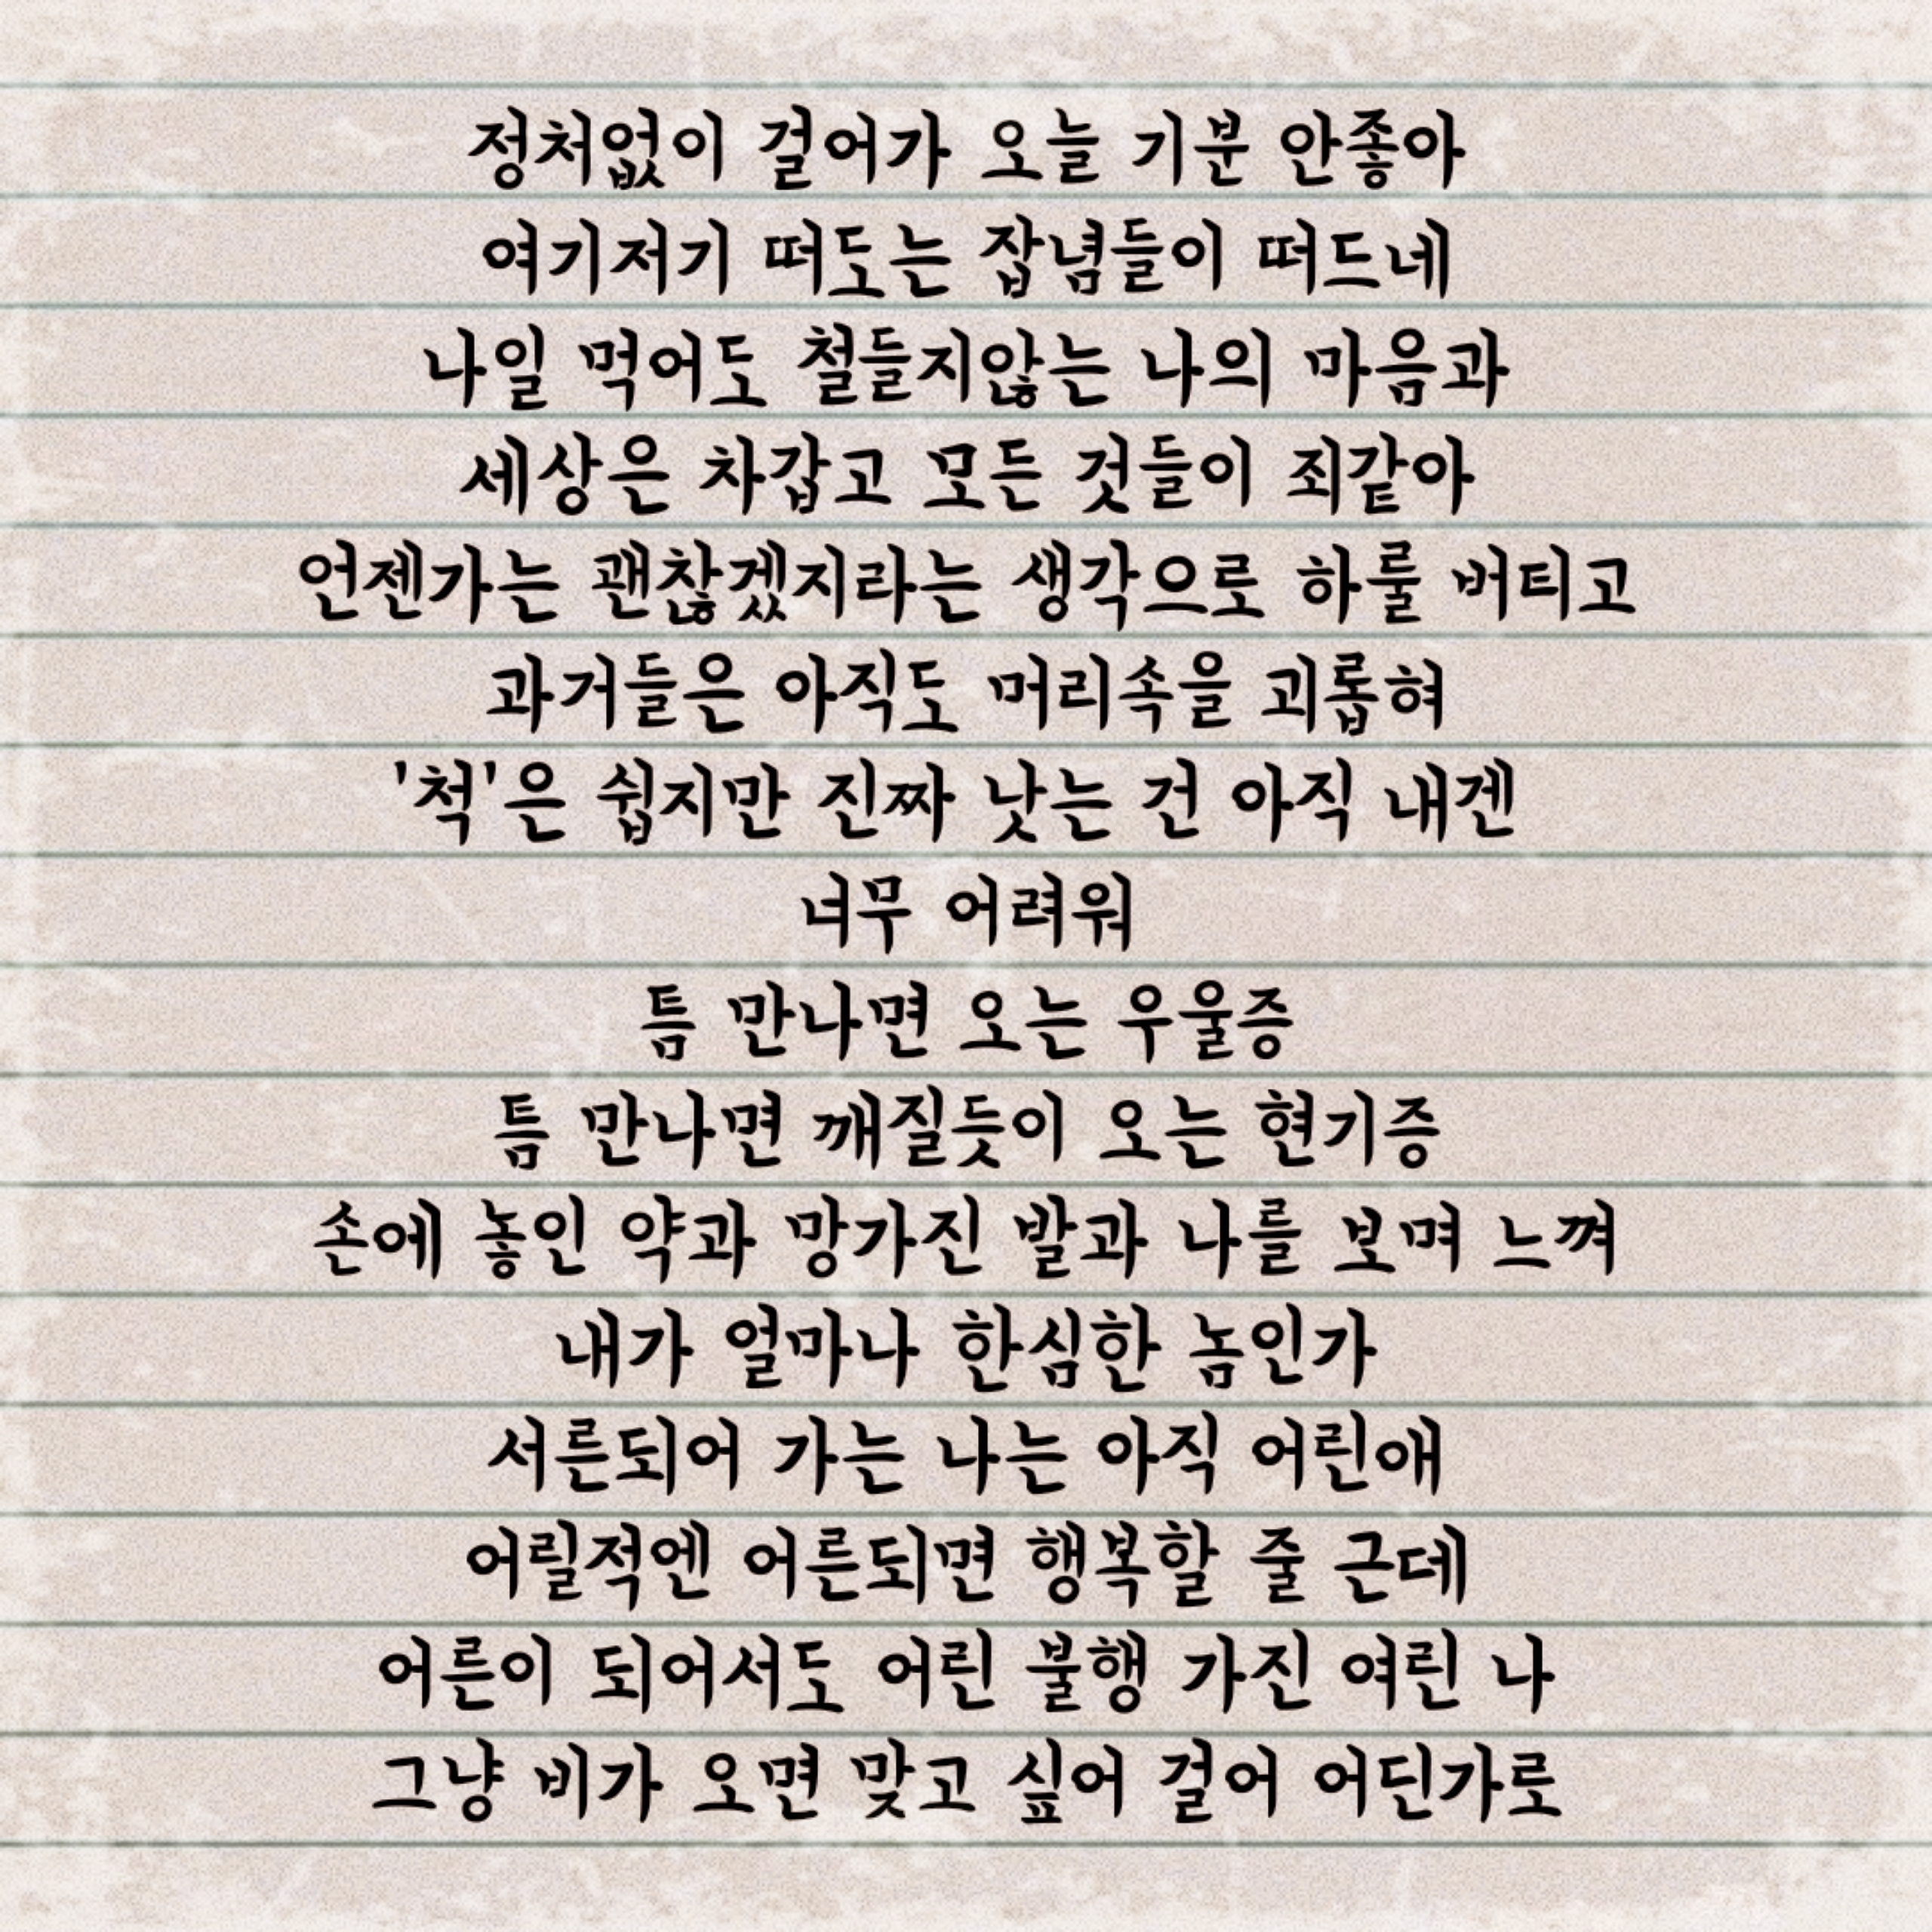 정처없이 걸어가 오늘 기분 안좋아
여기저기 떠도는 잡념들이 떠드네
나일 먹어도 철들지않는 나의 마음과
세상은 차갑고 모든 것들이 죄같아
언젠가는 괜찮겠지라는 생각으로 하룰 버티고
과거들은 아직도 머리속을 괴롭혀
'척'은 쉽지만 진짜 낫는 건 아직 내겐
너무 어려워
틈 만나면 오는 우울증
틈 만나면 깨질듯이 오는 현기증
손에 놓인 약과 망가진 발과 나를 보며 느껴
내가 얼마나 한심한 놈인가
서른되어 가는 나는 아직 어린애
어릴적엔 어른되면 행복할 줄 근데
어른이 되어서도 어린 불행 가진 여린 나
그냥 비가 오면 맞고 싶어 걸어 어딘가로